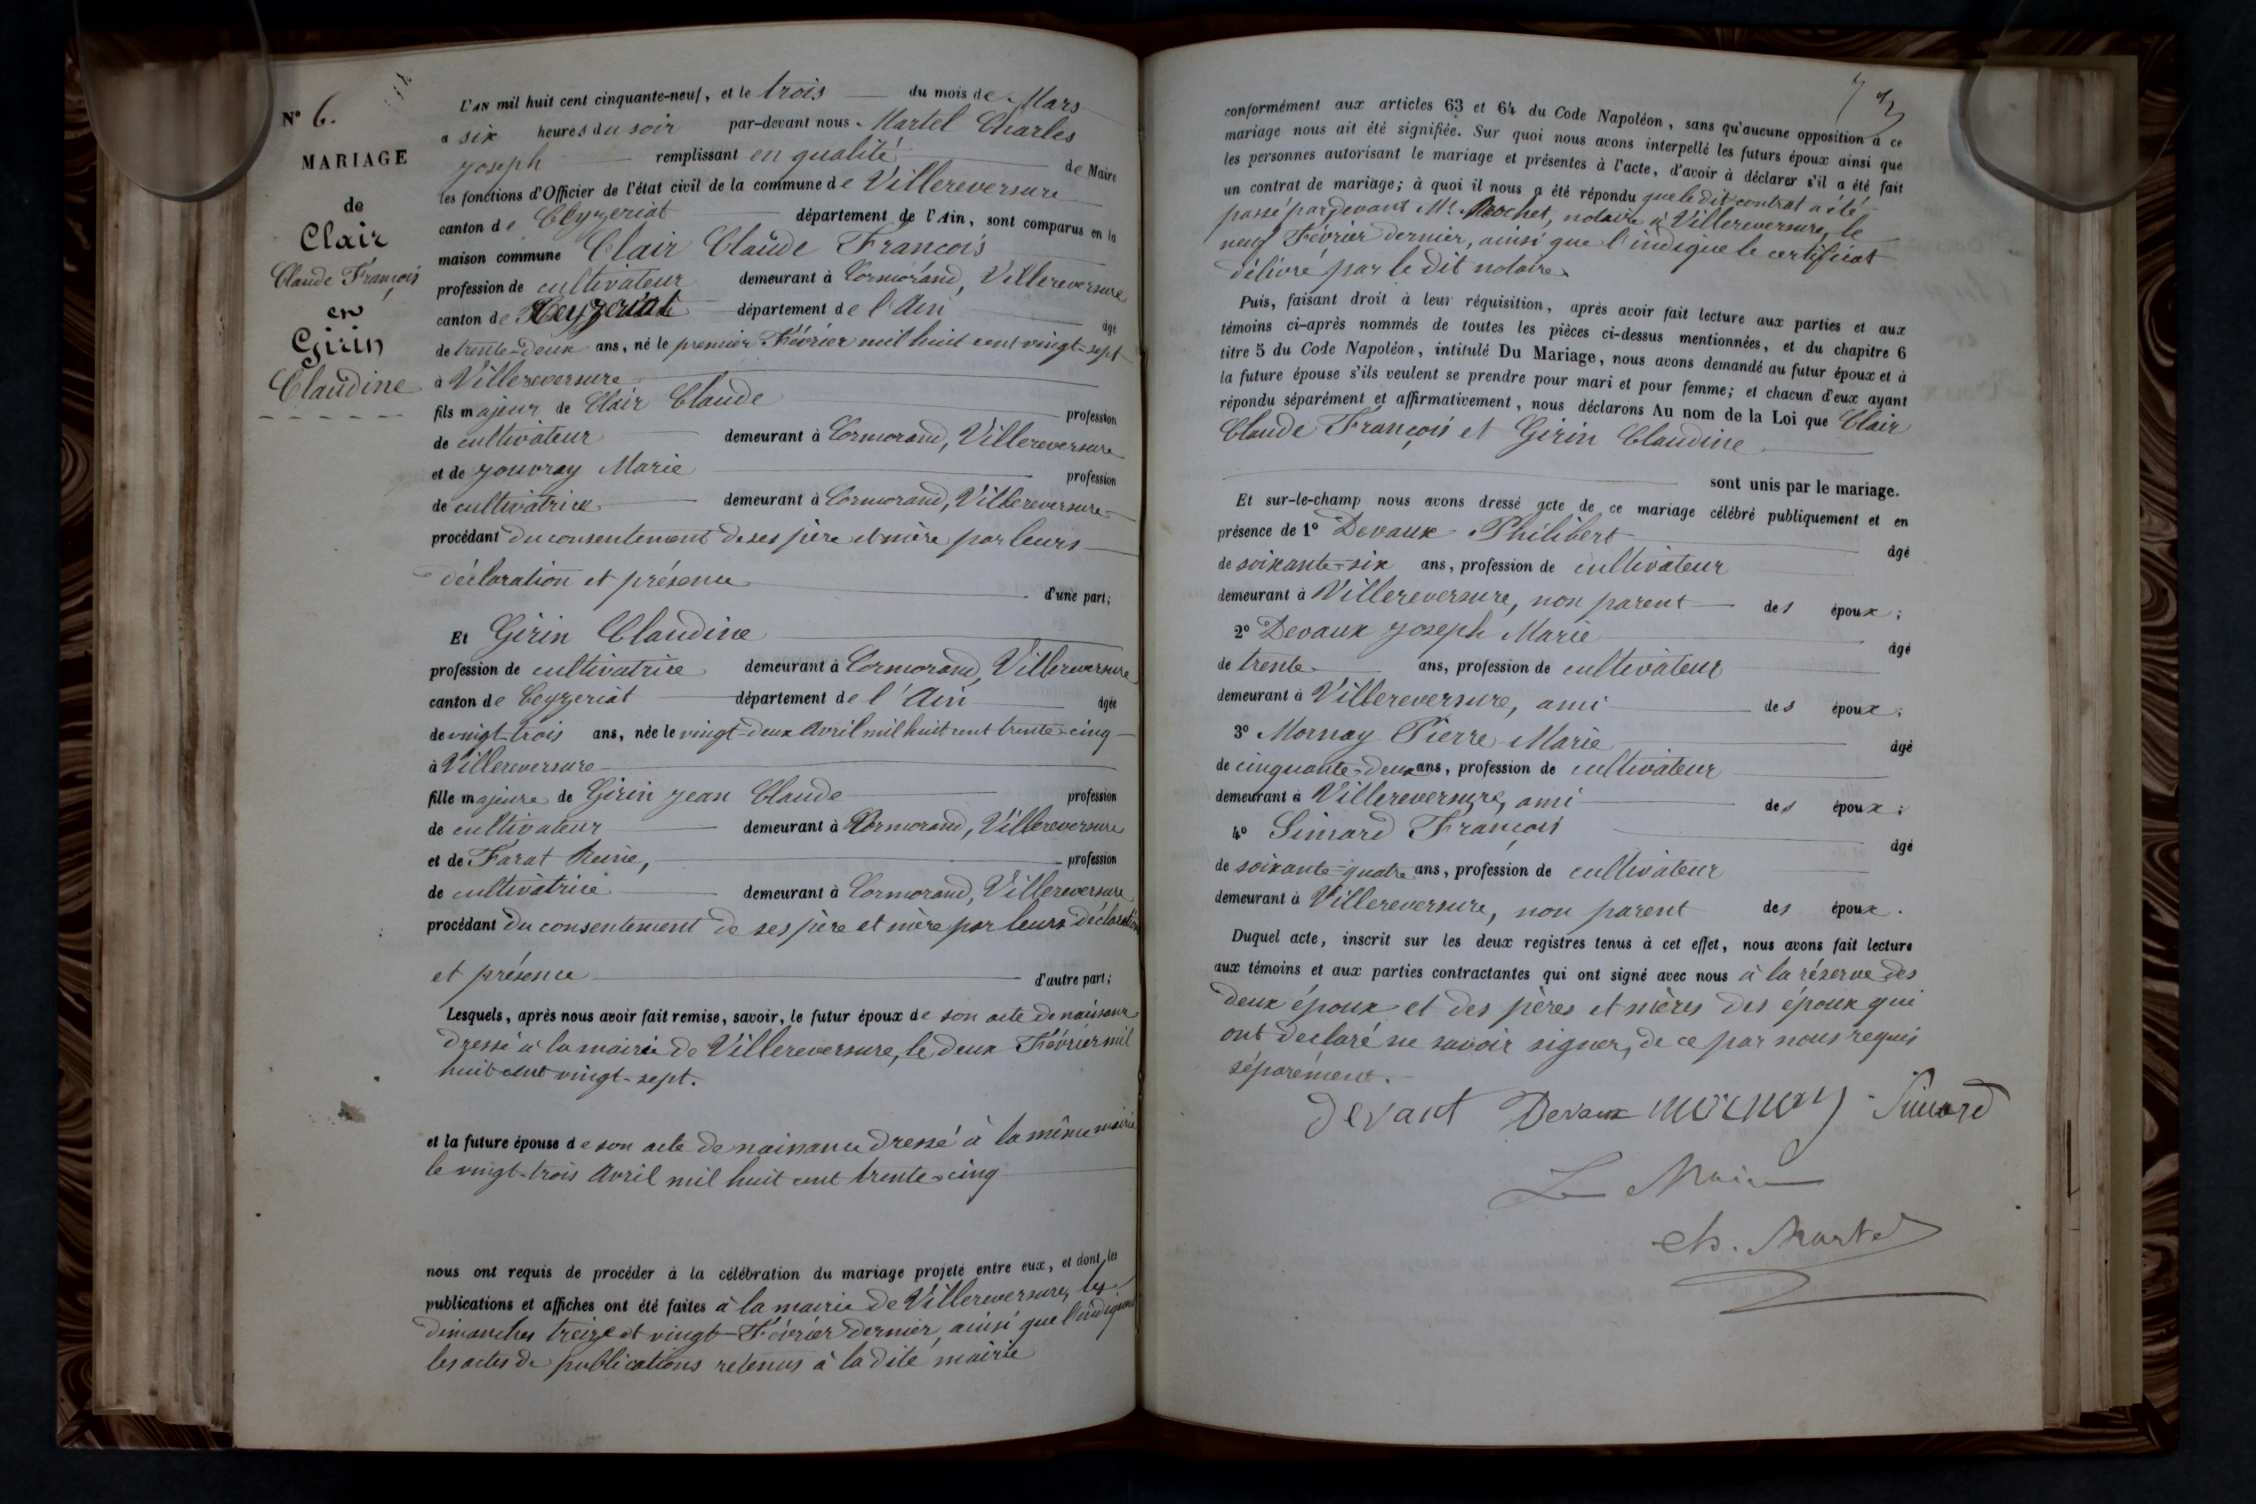 N° 6.
MARIAGE
de
Clair
Claude François
en
Girin
Claudine
L'AN mil huit cent cinquante-neuf, et le trois du mois de Mars
a six heures du soir par-devant nous Martel Charles
Joseph remplissant en qualité de Maire
les fonctions d'Officier de l'état civil de la commune de Villereversure
canton de Ceyzeriat département de l'Ain, sont comparus en la
maison commune Clair Claude François
profession de cultivateur demeurant à Cormorand, Villereversure
canton de Ceyzeriat département de l'Ain âgé
de trente-deux ans, né le premier Février mil huit cent vingt-sept
à Villereversure
fils majeur de Clair Claude profession
de cultivateur demeurant à Cormorand, Villereversure
et de Jouvray Marie profession
de cultivatrice demeurant à Cormorand, Villereversure
procédant du consentement de ses père et mère par leurs
déclaration et présence d'une part;
Et Girin Claudine
profession de cultivatrice demeurant à Cormorand, Villereversure
canton de Ceyzeriat département de l'Ain âgée
de vingt-trois ans, née le vingt-deux Avril mil huit cent trente-cinq
à Villereversure
fille majeure de Girin Jean Claude profession
de cultivateur demeurant à Cormorand, Villereversure
et de Farat Reine, profession
de cultivatrice demeurant à Cormorand, Villereversure
procédant du consentement de ses père et mère par leurs déclaration
et présence d'autre part;
Lesquels, après nous avoir fait remise, savoir, le futur époux de son acte de naissance
dressé à la mairie de Villereversure, le deux Février mil
huit cent vingt-sept.
et la future épouse de son acte de naissance dressé à la même mairie
le vingt-trois Avril mil huit cent trente-cinq
nous ont requis de procéder à la célébration du mariage projeté entre eux, et dont les
publications et affiches ont été faites à la mairie de Villereversure, les
dimanches treize et vingt Février dernier, ainsi que l'indiquent
les actes de publications retenus à la dite mairie
conformément aux articles 63 et 64 du Code Napoléon, sans qu'aucune opposition à ce
mariage nous ait été signifiée. Sur quoi nous avons interpellé les futurs époux ainsi que
les personnes autorisant le mariage et présentes à l'acte, d'avoir à déclarer s'il a été fait
un contrat de mariage; à quoi il nous a été répondu que le dit contrat a été
passé pardevant Me. Rochet, notaire à Villereversure, le
neuf Février dernier, ainsi que l'indique le certificat
délivré par le dit notaire.
Puis, faisant droit à leur réquisition, après avoir fait lecture aux parties et aux
témoins ci-après nommés de toutes les pièces ci-dessus mentionnées, et du chapitre 6
titre 5 du Code Napoléon, intitulé Du Mariage, nous avons demandé au futur époux et à
la future épouse s'ils veulent se prendre pour mari et pour femme; et chacun d'eux ayant
répondu séparément et affirmativement, nous déclarons Au nom de la Loi que Clair
Claude François et Girin Claudine
sont unis par le mariage.
Et sur-le-champ nous avons dressé acte de ce mariage célébré publiquement et en
présence de 1° Devaux Philibert âgé
de soixante-six ans, profession de cultivateur
demeurant à Villereversure, non parent des époux;
2° Devaux Joseph Marie âgé
de trente ans, profession de cultivateur
demeurant à Villereversure, ami des époux;
3° Mornay Pierre Marie âgé
de cinquante-deux ans, profession de cultivateur
demeurant à Villereversure, ami des époux;
4° Simard François âgé
de soixante-quatre ans, profession de cultivateur
demeurant à Villereversure, non parent des époux.
Duquel acte, inscrit sur les deux registres tenus à cet effet, nous avons fait lecture
aux témoins et aux parties contractantes qui ont signé avec nous à la réserve des
deux époux et des pères et mères des époux qui
ont déclaré ne savoir signer, de ce par nous requis
séparément.
Devaux mornay Simard
Le Maire
Ch. Martel